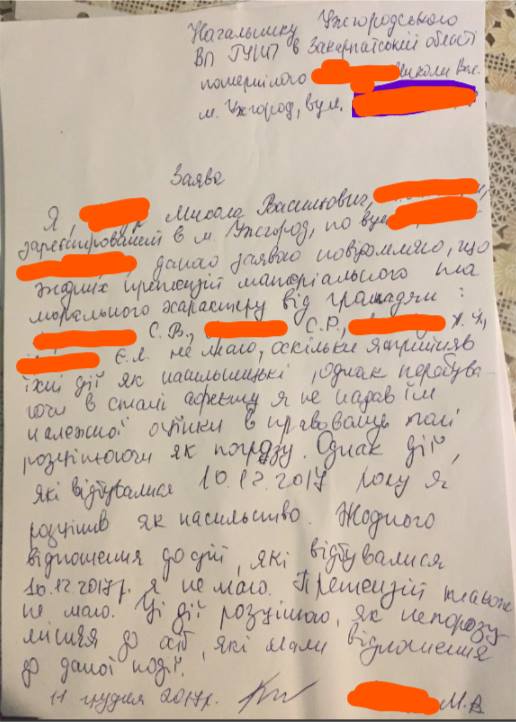 Начальнику Ужгородського
ВП ГУНП в Закарпатській області
потерпілого Миколи Вас.
м. Ужгород, вул.
Заява
Я, Микола Васильович,
зареєстрований в м. Ужгород, по вул.
даною заявою повідомляю, що
жодних претензій матеріального та
морального характеру від громадян:
С.В., С.Р., Я.Я,
Є.Я. не маю, оскільки я прийняв
їхні дії як насильницькі, однак перебува-
ючи в стані афекту я не надав їм
належної оцінки в правовому полі
розцінюючи як погрозу. Однак дії,
які відбувалися 10.12.2017 року я
розцінив як насильство. Жодного
відношення до дій, які відбувалися
10.12.2017р. я не маю. Претензій також
не маю. Ці дії розцінюю, як непорозу
міння до осіб, які мали відношення
до даної події.
11 грудня 2017р. М.В